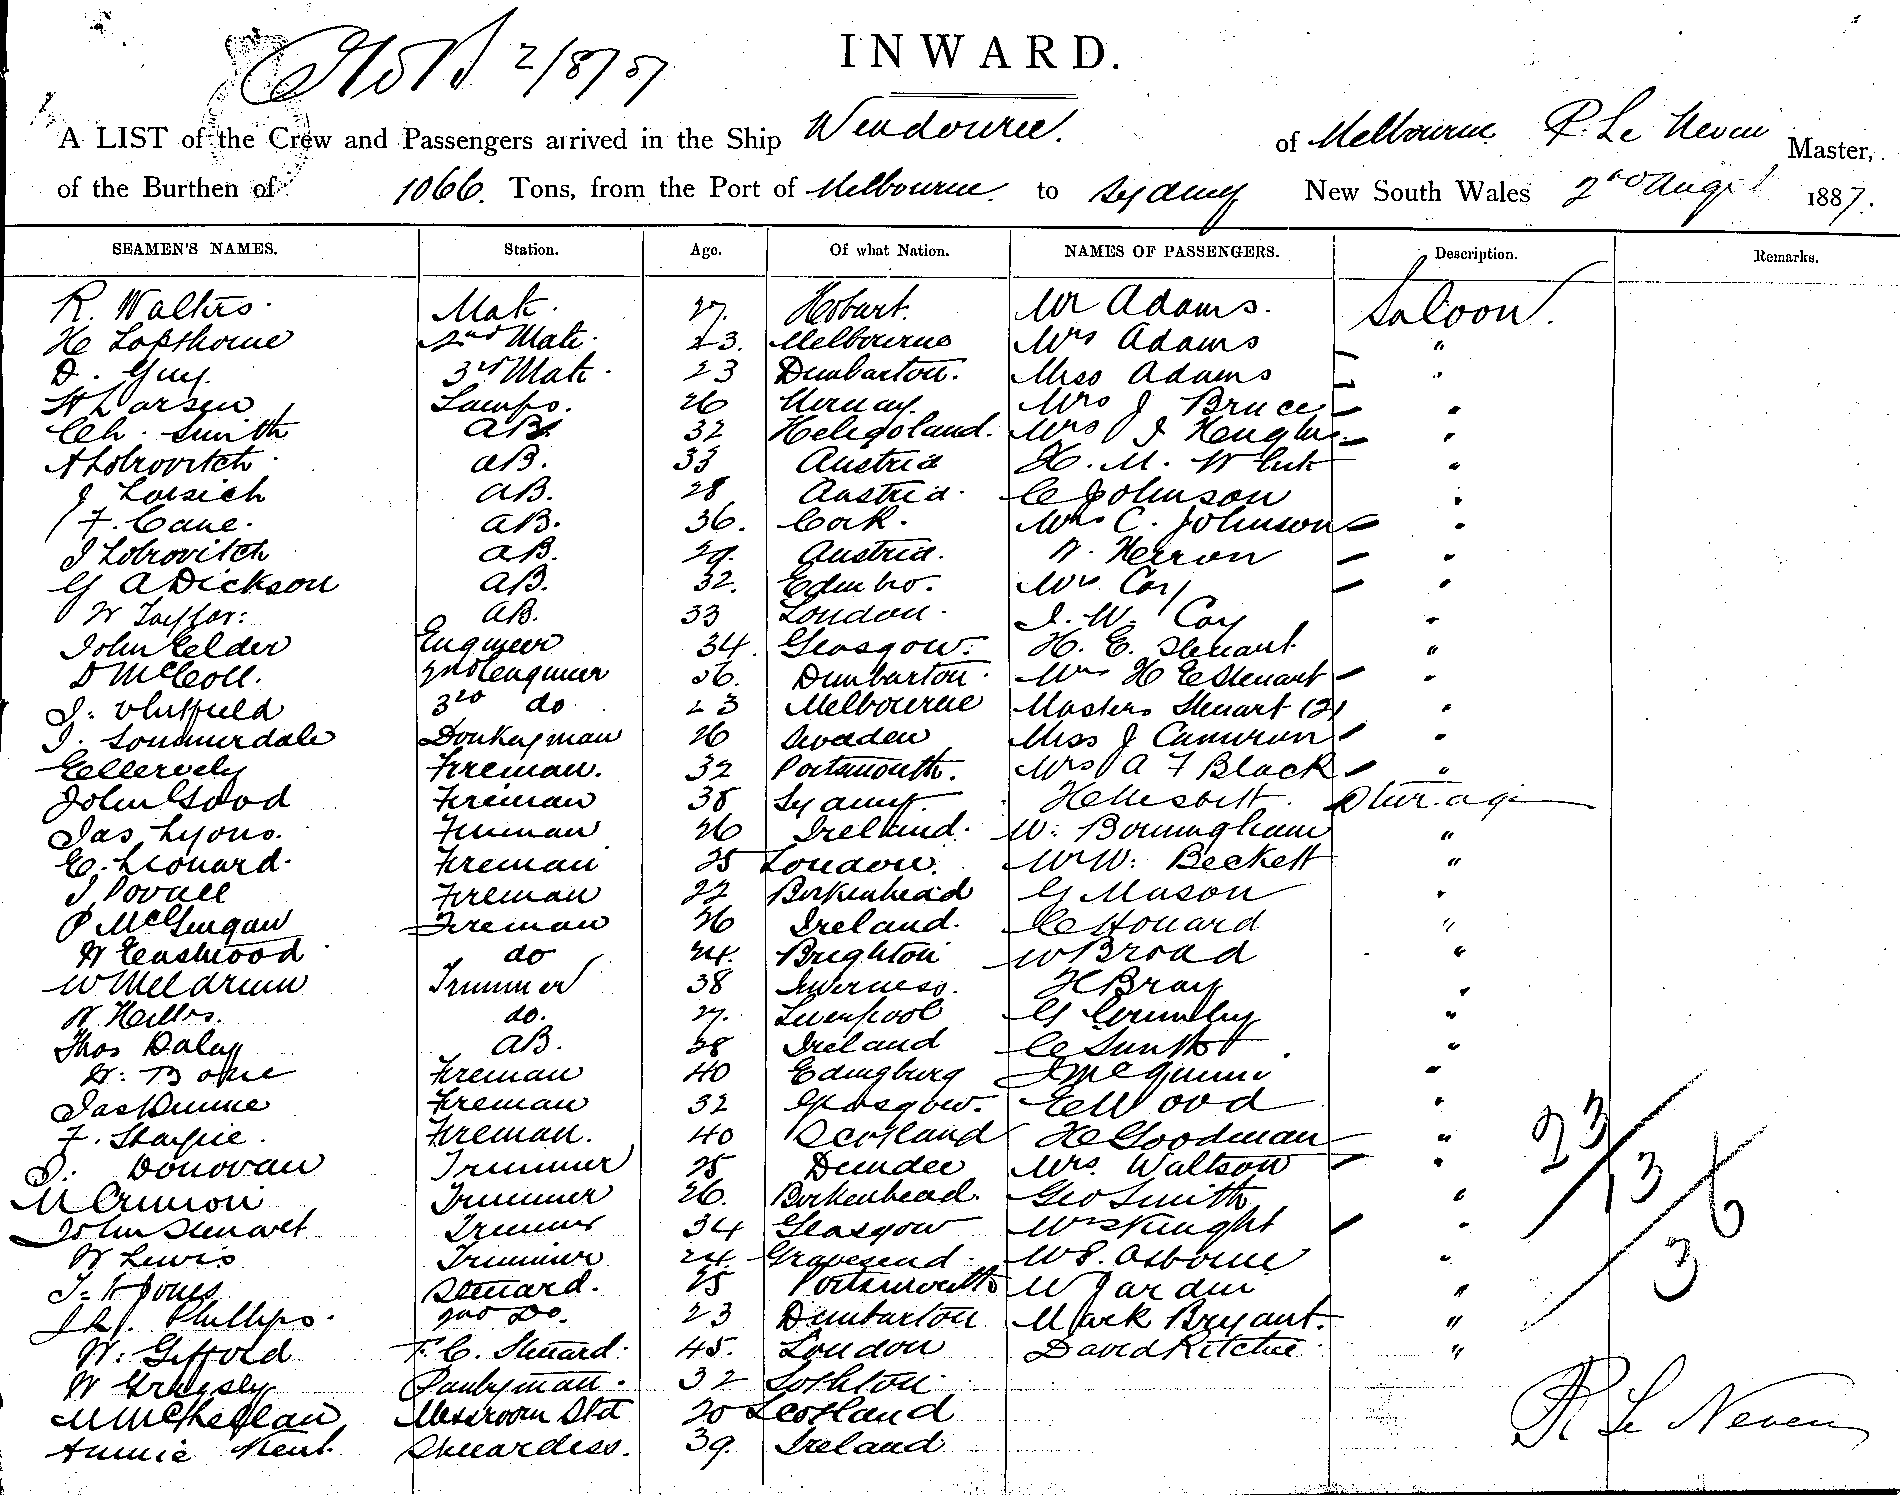 2/8/87
INWARD.
A LIST of the Crew and Passengers arrived in the Ship Wendouree. of Melbourne R. Le Neven Master,
of the Burthen of 1066. Tons, from the Port of Melbourne. to Sydney New South Wales 2nd Augst 1887.
SEAMEN'S NAMES. Station. Age. Of what Nation. NAMES OF PASSENGERS. Description. Remarks.
R. Walters. Mate. 27. Hobart. Mr Adams. Saloon.
H Lapthorne 2nd Mate. 23. Melbourne Mrs Adams "
D. Guy. 3rd Mate. 23 Dumbarton. Miss Adams "
H Larsen Lamps. 26 Norway. Mrs J Bruce "
Ch. Smith AB. 32 Heligoland. Mrs J "
A Lobrovitch AB. 33 Austria H. M. White "
J AB. 28 Austria. C Johnson "
F. Cane. AB. 36. Cork. Mrs C. Johnson "
J Lobrovitch AB. 29. Austria. W. Herron "
G A Dickson AB. 32. Edinbro. Mrs Coy "
W Taylor: AB. 33 London. J. W. Coy "
John Elder Engineer 34. Glasgow. H. E. Steuart "
D McColl. 2nd Engineer 36. Dumbarton. Mrs H E Steuart "
J. Whitfield 3rd do 23 Melbourne Masters Steuart (2) "
J. Sommerdale Donkeyman 26 Sweden Miss J Cameron "
E Fireman. 32 Portsmouth. Mrs A F Black "
John Good Fireman 38 Sydney. H Nesbitt. Steerage
Jas Lyons. Fireman 26 Ireland. W. Bormingham "
E. Leonard. Fireman 25 London. Mr W. Beckett "
J Povall Fireman 22 Birkenhead G Mason "
P McGuigan Fireman 26 Ireland. C Howard "
W Eastwood do 24. Brighton W Broad "
W Meldrum Trimmer 38 Inverness. H Bray "
W do. 27. Liverpool G "
Thos Daley AB. 38 Ireland C Smith "
Fireman 40 Edingburg J McGuinn "
Jas Dunne Fireman 32 Glasgow. E Wood "
F. Sharpie. Fireman. 40 Scotland H Goodman "
J. Donovan Trimmer 25 Dundee Mrs. Waltson "
M Trimmer 26. Birkenhead. Geo Smith "
John Steuart Trimmer 34 Glasgow Mrs Knight "
W Lewis Trimmer 24. Gravesend. W S. Osborne "
J. H Jones Steward. 25 Portsmouth W Jardin "
J R J. Phillips. 2nd Do. 23 Dumbarton Mark Bryant. "
W. Gifford F. C. Steuard. 45. London David Ritchie "
W Pantryman. 32
M McLellan Messroom Std 20 Scotland
Annie Kent. Steuardess. 39. Ireland
23
13
6
3
R Le Neven